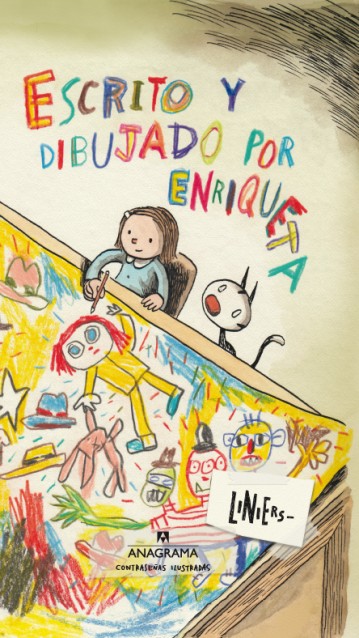 ESCRITO Y
DIBUJADO POR
ENRIQUETA
LiNiERS_
ANAGRAMA
CONTRASEÑAS ILUSTRADAS